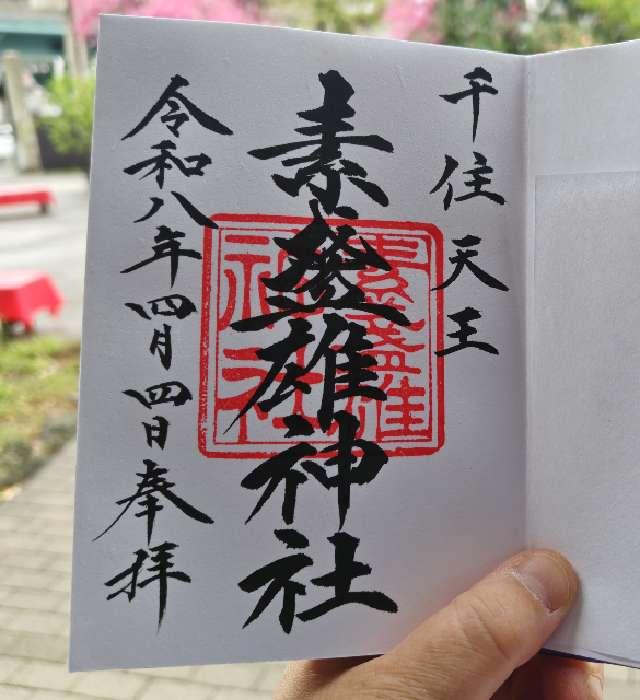 千住天王
素盞雄神社
素盞雄
神社
令和八年四月四日奉拝